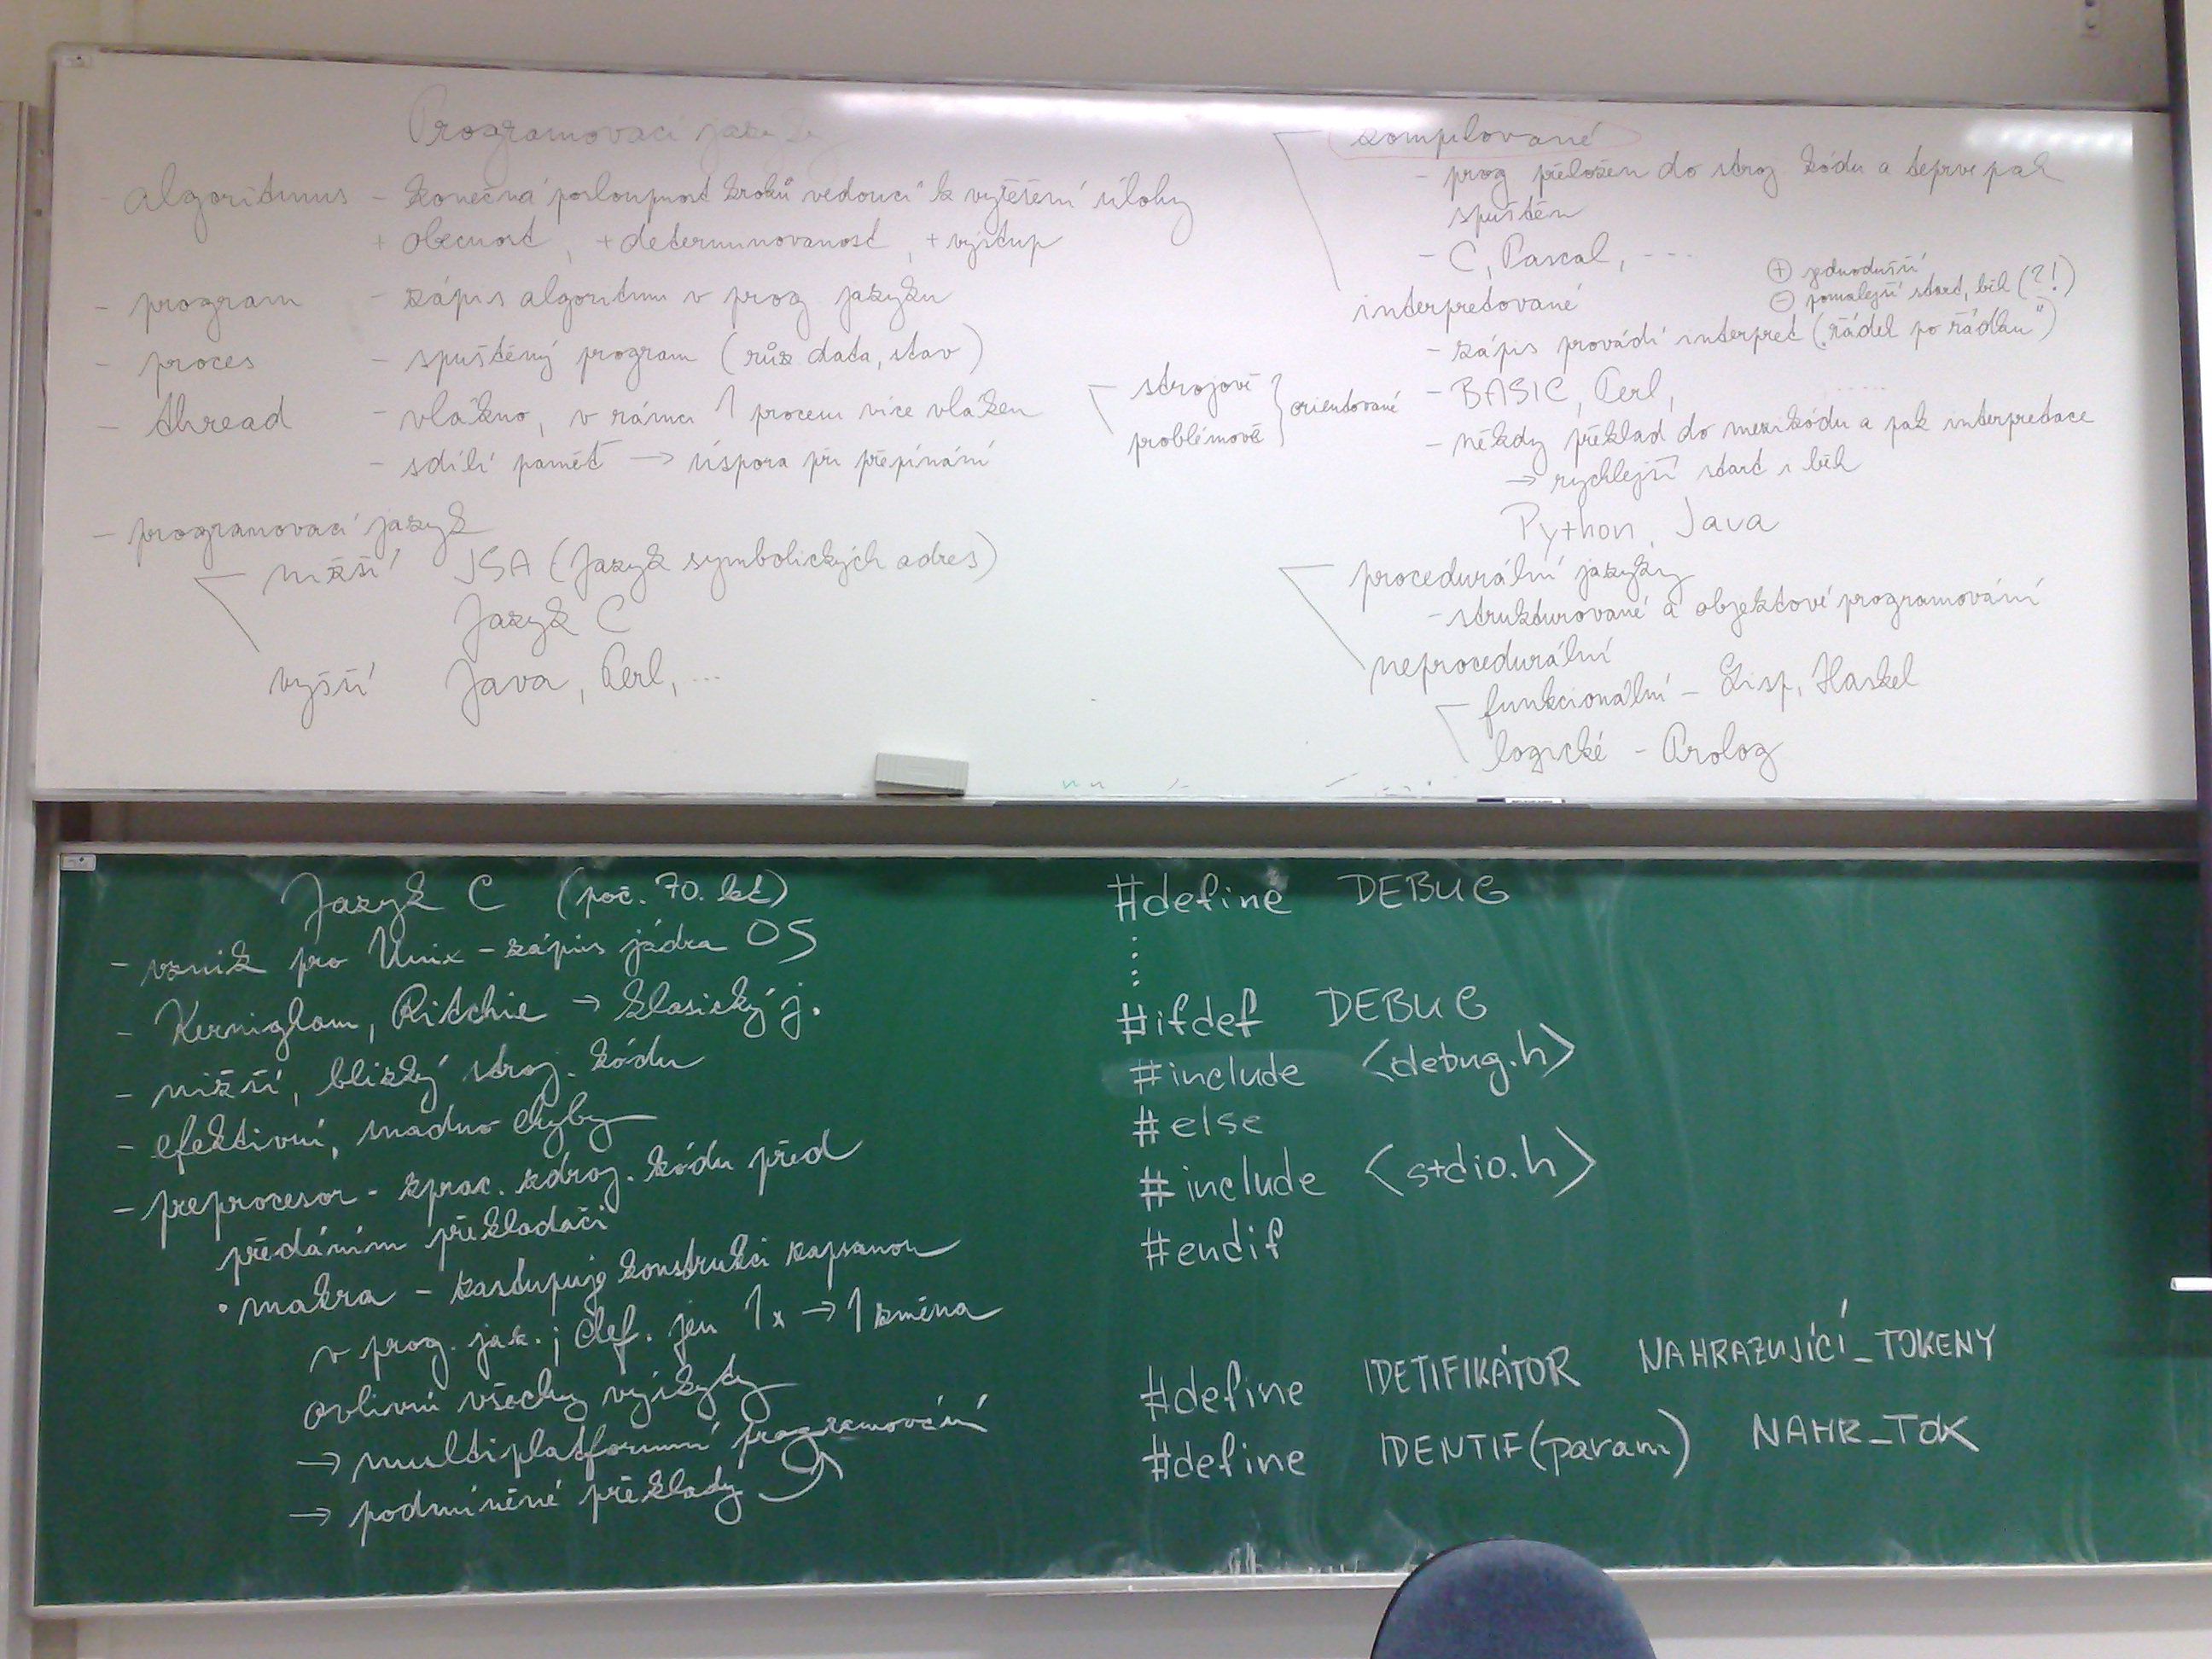 Programovací jazyky
- algoritmus - konečná posloupnost kroků vedoucí k vyřešení úlohy
+ obecnost, + determinovanost, + výstup
- program - zápis algoritmu v prog jazyku
- proces - spuštěný program (růz data, stav)
- thread - vlákno, v rámci 1 procesu více vláken
- sdílí paměť → úspora při přepínání
- programovací jazyk
nižší JSA (Jazyk symbolických adres)
Jazyk C
vyšší Java, Perl, ...
strojově
problémově
} orientované
kompilované
- prog přeložen do stroj kódu a teprve pak
spuštěn
- C, Pascal, ...
interpretované
⊕ jednodušší
⊖ pomalejší start, běh (?!)
- zápis provádí interpret („řádek po řádku")
- BASIC, Perl, .....
- někdy překlad do mezikódu a pak interpretace
→ rychlejší start i běh
Python, Java
procedurální jazyky
- strukturované a objektové programování
neprocedurální
funkcionální - Lisp, Haskel
logické - Prolog
Jazyk C (poč. 70. let)
- vznik pro Unix - zápis jádra OS
- Kernigham, Ritchie → klasický j.
- nižší, blízký stroj. kódu
- efektivní, snadno chyby
- preprocesor - zprac. zdroj. kódu před
předáním překladači
• makra - zastupují konstrukci zapsanou
v prog. jaz.; def. jen 1x → 1 změna
ovlivní všechny výskyty
→ multiplatformní programování
→ podmíněné překlady
#define DEBUG
⋮
#ifdef DEBUG
#include <debug.h>
#else
#include <stdio.h>
#endif
#define IDETIFIKÁTOR NAHRAZUJÍCÍ_TOKENY
#define IDENTIF(param) NAHR_TOK